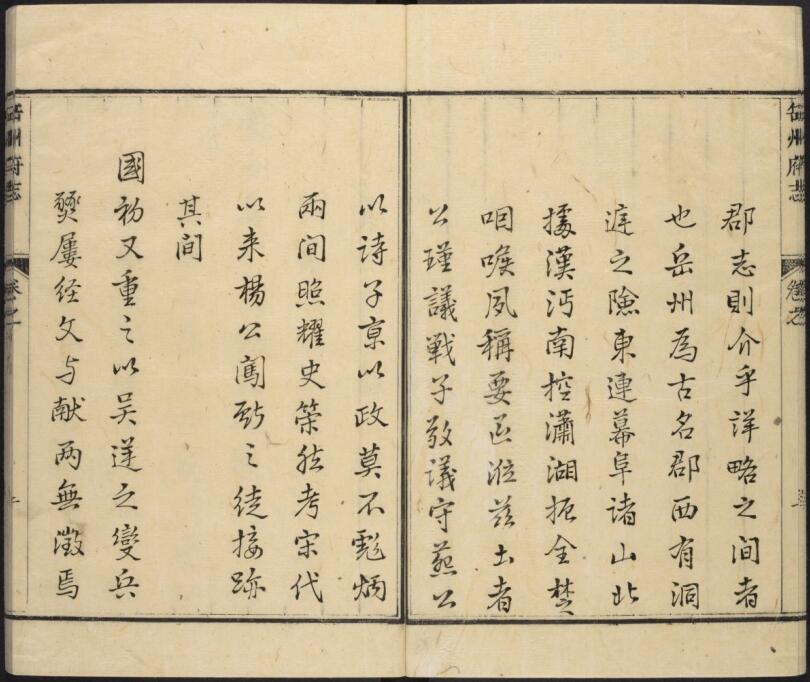 岳州府志
卷之
郡志則介乎詳略之间者
也岳州為古名郡西有洞
庭之險東連幕阜诸山北
據漢沔南控瀟湖扼全楚
咽喉夙稱要区涖茲土者
公瑾議戦子敬議守燕公
以诗子京以政莫不彪炳
兩间照耀史策然考宋代
以来楊公闖之徒接跡
其间
國初又重之以吴逆之變兵
燹屢经文与献两無徵焉
岳州府志
卷之